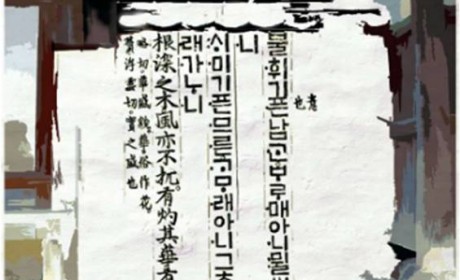 불휘기픈남ᄀᆞᆫᄇᆞᄅᆞ매아니뮐
니
ᄉᆡ미기픈므른ᄀᆞᄆᆞ래아니그츨
래가ᄂᆞ니
根深之木風亦不扤。有灼其華有
略切華盛貌華俗作花
切實之盛也